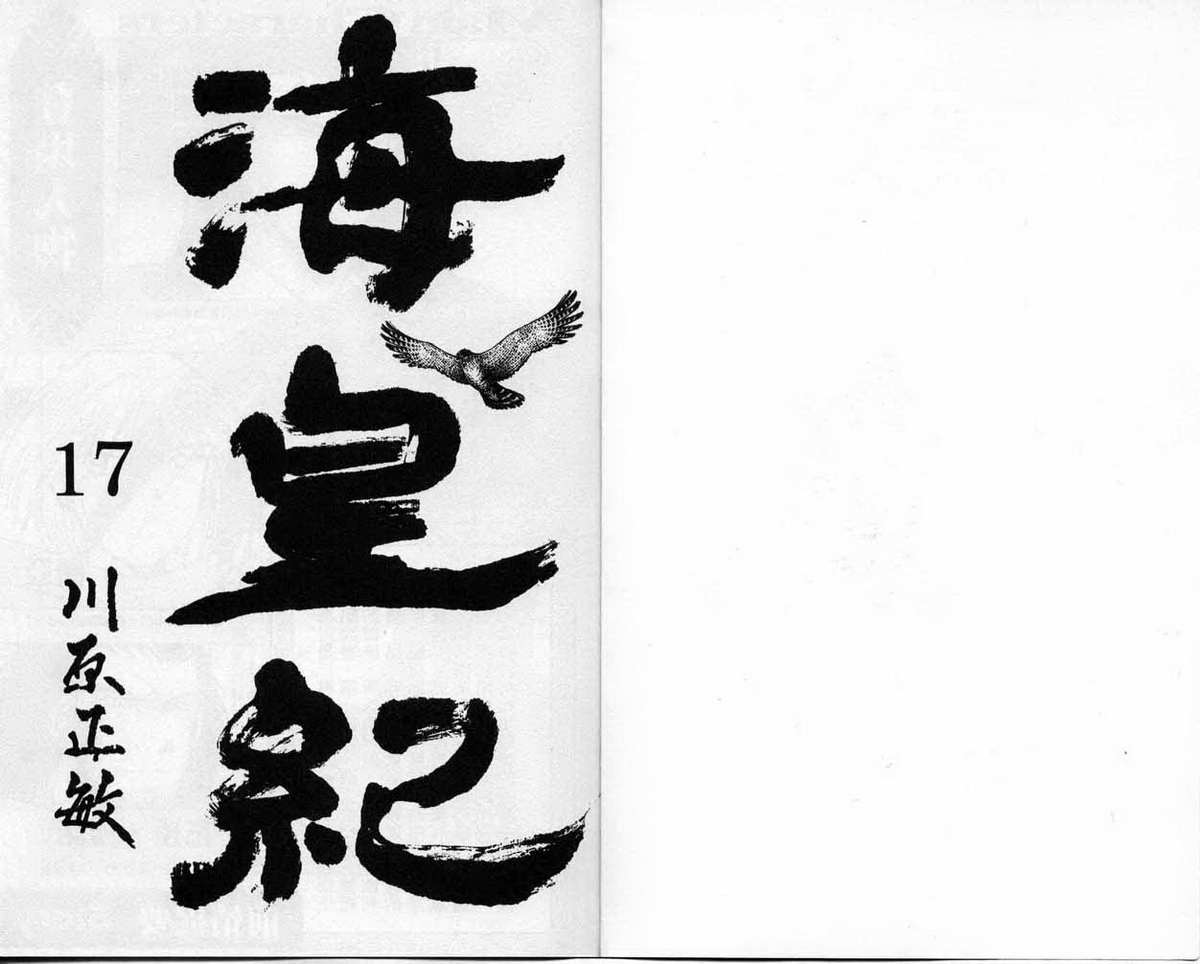 海皇紀
17
川原正敏